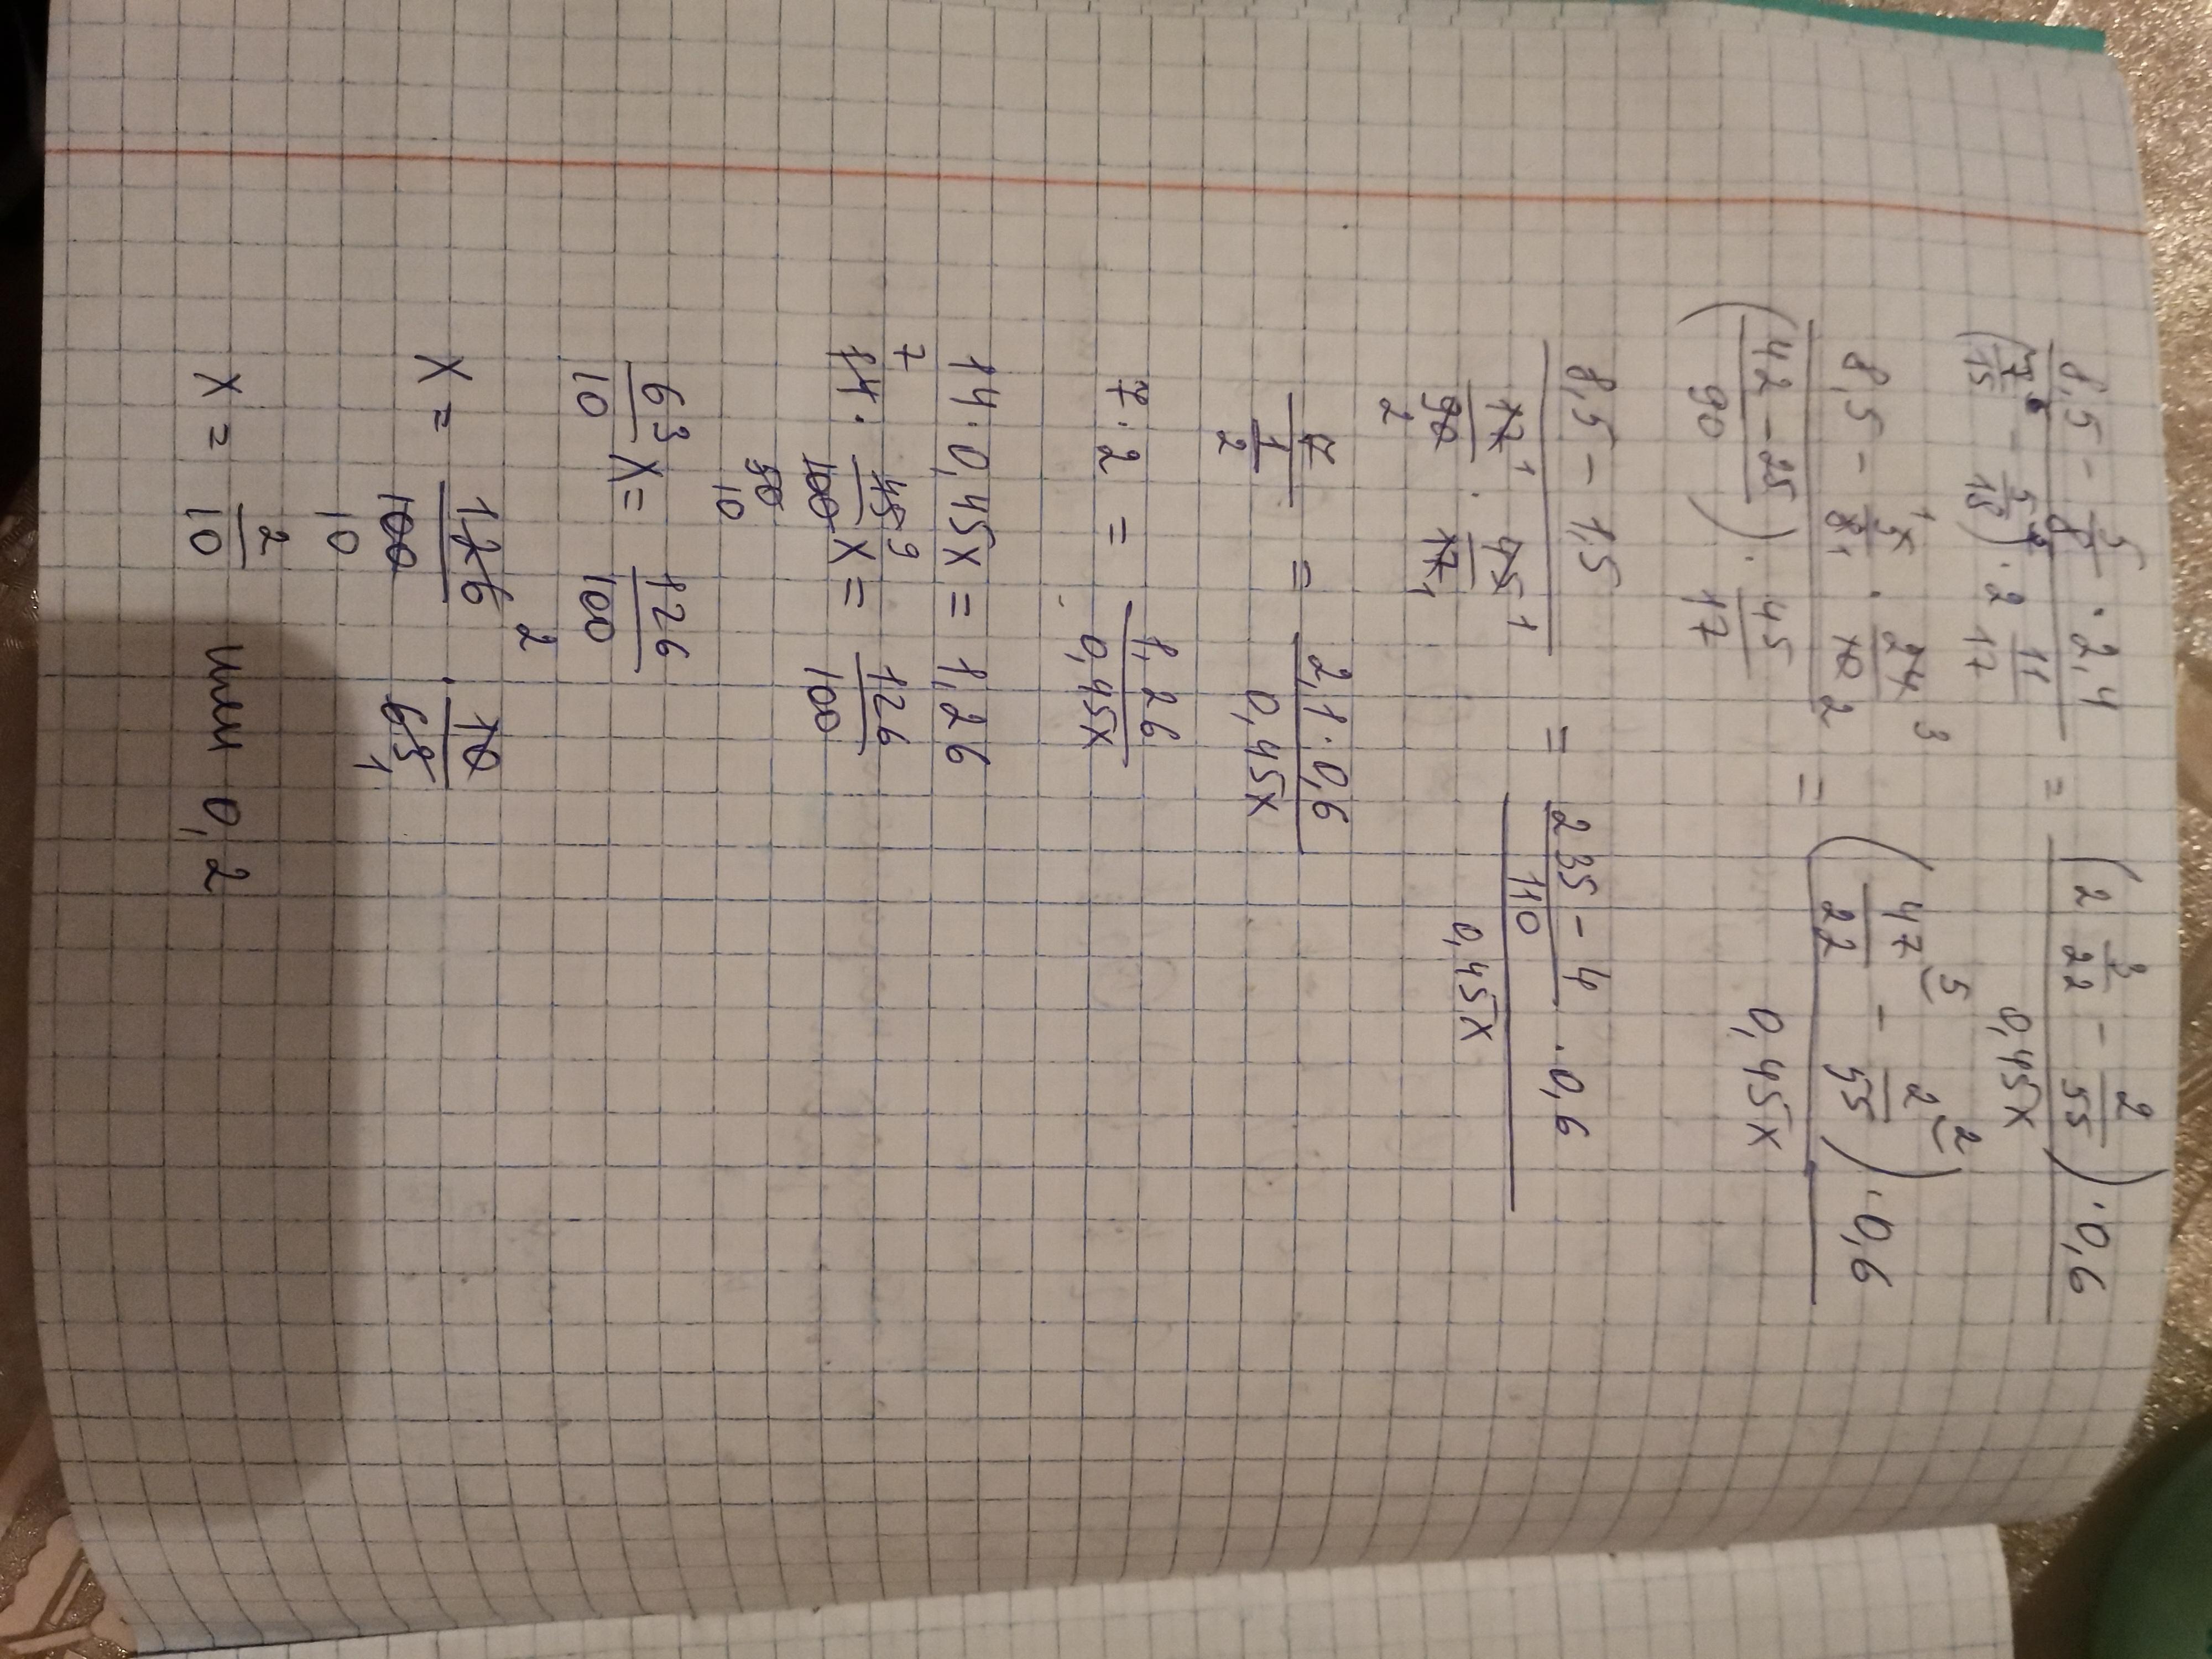 8,5 - 5/8 · 2,4 / (7/15 - 5/18) · 2 11/17 = (2 3/22 - 2/55) · 0,6 / 0,45x
8,5 - 5/8 · 24/10 / (42 - 25 / 90) · 45/17 = (47/22 - 2/55) · 0,6 / 0,45x
8,5 - 1,5 / 17/90 · 45/17 = 235 - 4 / 110 · 0,6 / 0,45x
7 / 1/2 = 2,1 · 0,6 / 0,45x
7 · 2 = 1,26 / 0,45x
14 · 0,45x = 1,26
14 · 45/100 x = 126/100
63/10 x = 126/100
x = 126/100 · 10/63
x = 2/10 или 0,2